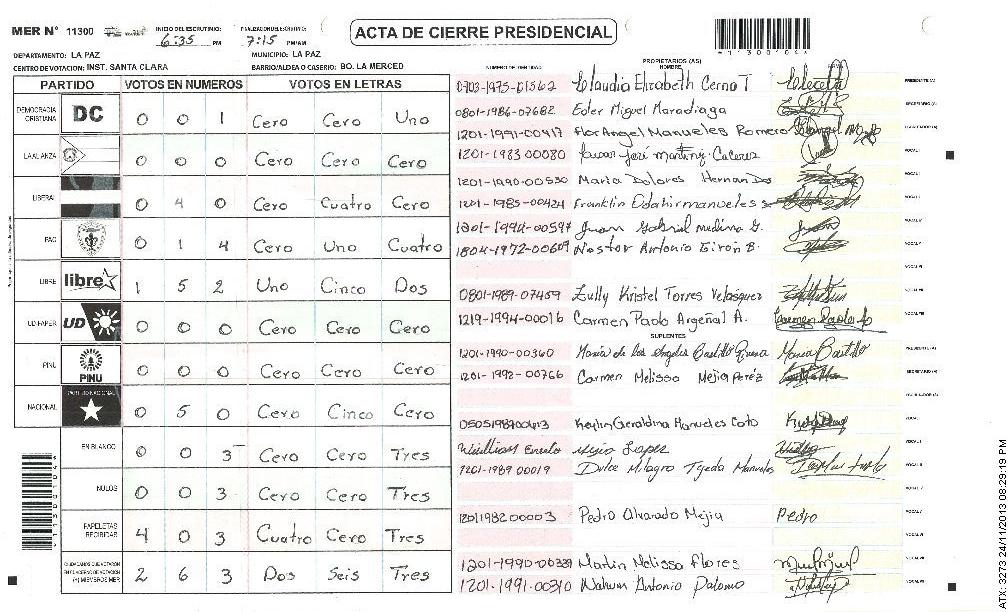 MER N° 11300
INICIO DEL ESCRUTINIO: 6:35 PM
FINALIZACION ESCRUTINIO: 7:15 PM/AM
ACTA DE CIERRE PRESIDENCIAL
DEPARTAMENTO: LA PAZ
MUNICIPIO: LA PAZ
CENTRO DE VOTACION: INST. SANTA CLARA
BARRIO/ALDEA O CASERIO: BO. LA MERCED
PARTIDO VOTOS EN NUMEROS VOTOS EN LETRAS
DEMOCRACIA CRISTIANA DC 0 0 1 Cero Cero Uno
LA ALIANZA 0 0 0 Cero Cero Cero
LIBERAL 0 4 0 Cero Cuatro Cero
PAC 0 1 4 Cero Uno Cuatro
LIBRE libre 1 5 2 Uno Cinco Dos
UD-FAPER UD 0 0 0 Cero Cero Cero
PINU PINU 0 0 0 Cero Cero Cero
NACIONAL PARTIDO NACIONAL 0 5 0 Cero Cinco Cero
EN BLANCO 0 0 3 Cero Cero Tres
NULOS 0 0 3 Cero Cero Tres
PAPELETAS RECIBIDAS 4 0 3 Cuatro Cero Tres
CIUDADANOS QUE VOTARON EN CUADERNO DE VOTACION (+) MIEMBROS MER 2 6 3 Dos Seis Tres
NUMERO DE IDENTIDAD
PROPIETARIOS (AS)
NOMBRE
0703-1975-01562 Claudia Elizabeth Cerna T PRESIDENTE (A)
0801-1986-07682 Eder Miguel Maradiaga SECRETARIO (A)
1201-1991-00417 Flor Angel Manueles Romero ESCRUTADOR (A)
1201-1983 00080 José Martinez Caceres VOCAL I
1201-1990-00530 Maria Dolores Hernandes
1201-1985-00424 Franklin Odahir manueles
Juan Gabriel medina G.
1804-1972-00609 Nestor Antonio Giron B.
0801-1989-07459 Zully Kristel Torres Velasquez
1219-1994-00016 Carmen Paola Argeñal A.
SUPLENTES
1201-1990-00360 Maria de los Angeles Castillo Maria Castillo PRESIDENTE (A)
1201-1992-00766 Carmen Melissa Mejia Peréz SECRETARIO (A)
Keylin Geraldina Manueles Coto
Mejia Lopez
1201-1989 00019 Dulce Milagro Tejeda Manueles
1201198200003 Pedro Alvarado Mejia Pedro
1201-1990-00339 Melissa Flores
1201-1991-00310 Antonio Palomo
113001041
ATX-3273 24/11/2013 08:29:19 PM